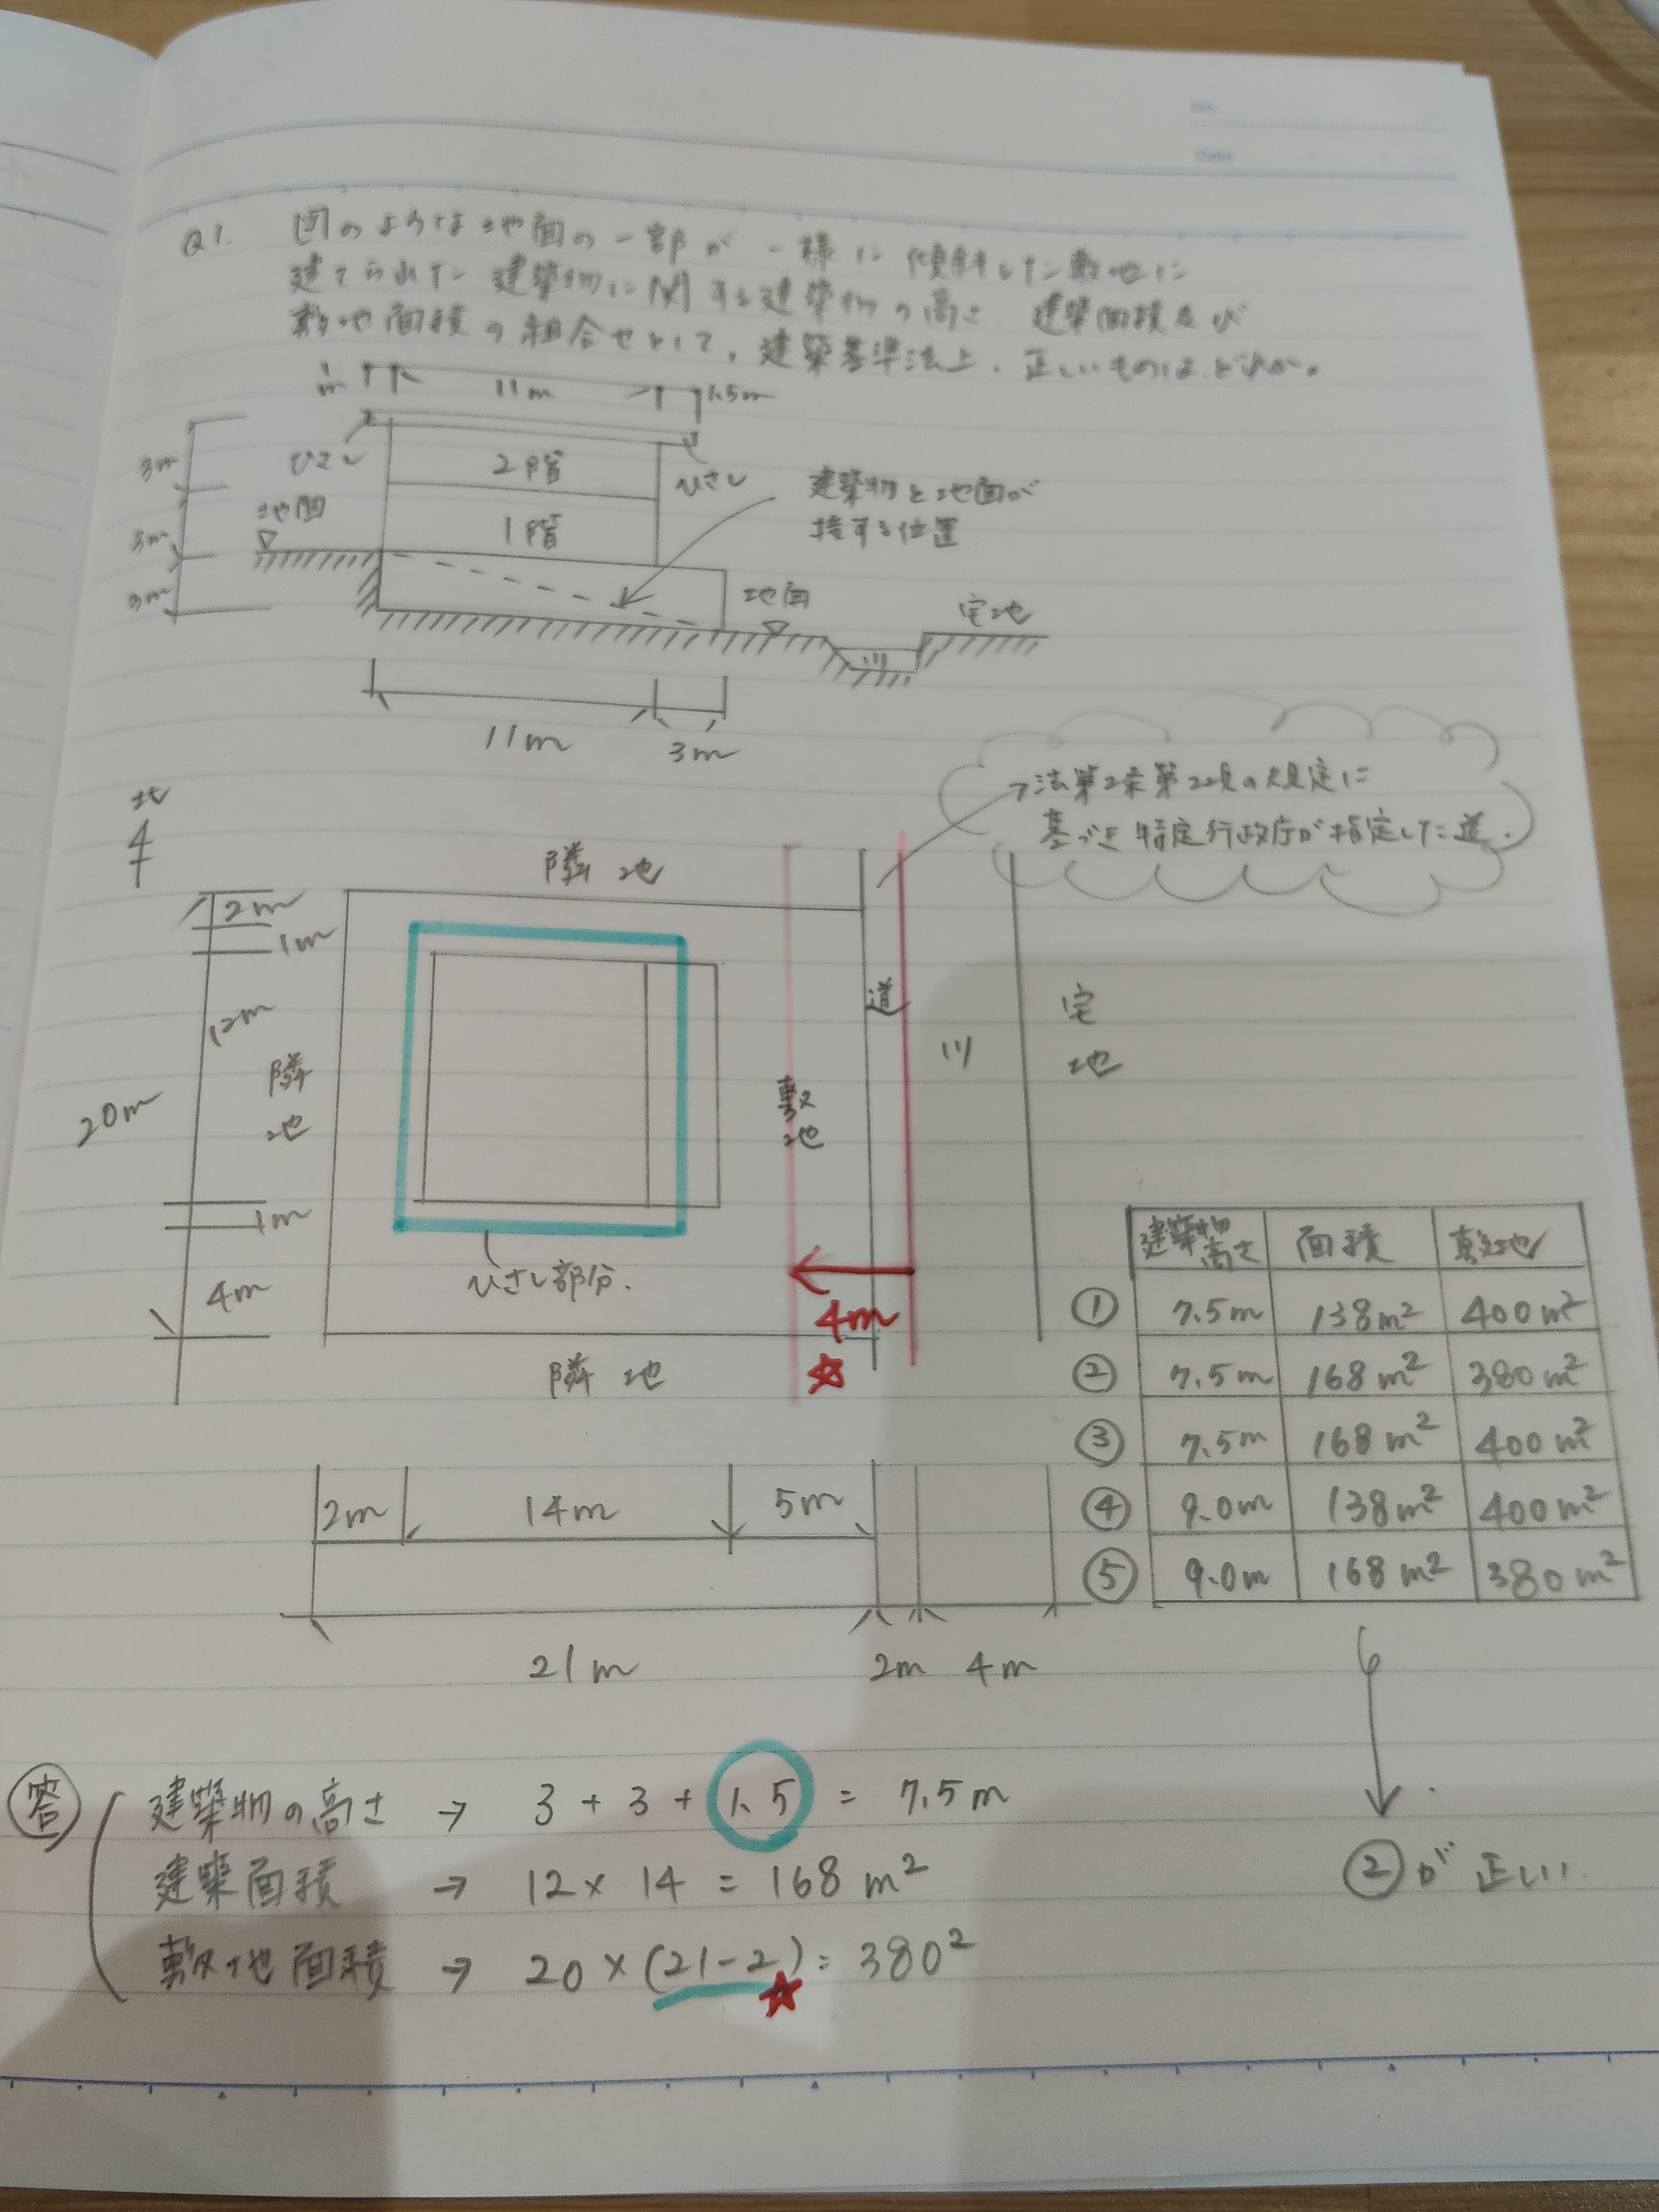 Q1. 図のような地面の一部が一様に傾斜した敷地に
建てられた建築物に関する建築物の高さ 建築面積及び
敷地面積の組合せとして、建築基準法上、正しいものは、どれか。
1m 11m 1.5m
3m ひさし 2階 ひさし 建築物と地面が
接する位置
地面
3m 1階
3m 地面 宅地
川
11m 3m
北
法第2条第2項の規定に
基づき特定行政庁が指定した道.
隣地
2m
1m
12m
隣地
20m
敷地
道
川
宅地
1m
ひさし部分.
4m
4m
隣地
建築物高さ 面積 敷地
① 7.5m 138m² 400m²
② 7.5m 168m² 380m²
③ 7.5m 168m² 400m²
④ 9.0m 138m² 400m²
⑤ 9.0m 168m² 380m²
2m 14m 5m
21m 2m 4m
答 建築物の高さ → 3 + 3 + 1.5 = 7.5m
建築面積 → 12 × 14 = 168 m²
敷地面積 → 20 × (21-2) = 380²
②が正しい.